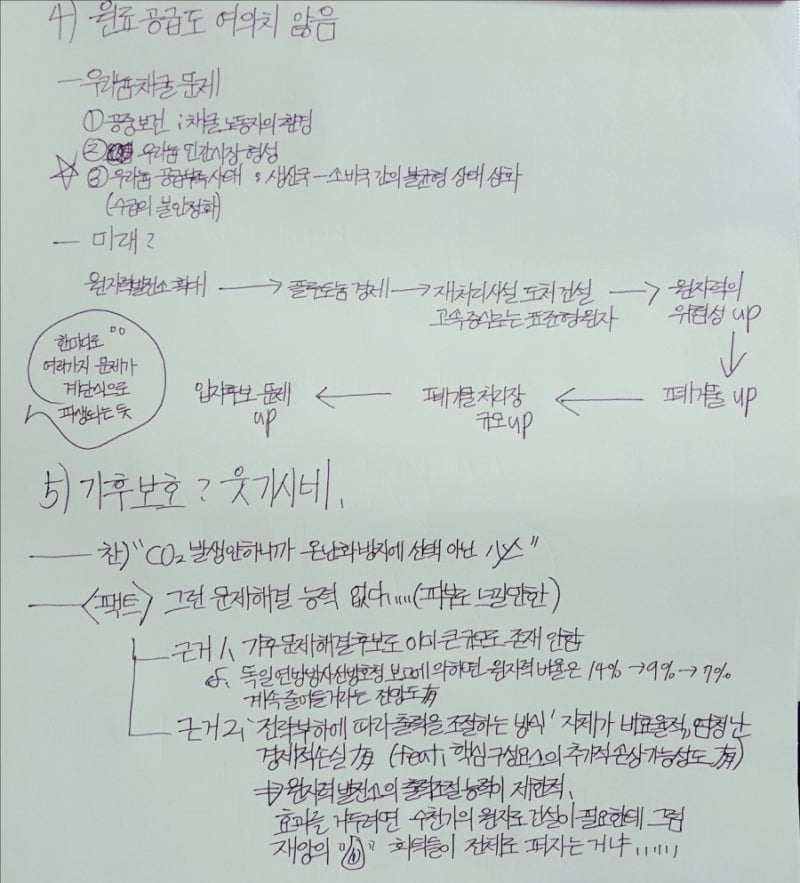 4) 원료 공급도 여의치 않음
— 우라늄 채굴 문제
① 공중보건 ; 채굴 노동자의 환경
② 우라늄 민간시장 형성
☆ ③ 우라늄 공급부족사태 : 생산국 - 소비국 간의 불균형 상태 심화
(수급의 불안정화)
— 미래?
원자력발전소 확대 → 플루토늄 경제 → 재처리시설 도처 건설 → 원자력의
고속증식로는 표준형 원자 위험성 up
한마디로
여러가지 문제가
계단식으로
파생되는 듯
입지후보 문제 up ← 폐기물 처리장 규모 up ← 폐기물 up
5) 기후보호? 웃기시네.
— 찬) "CO₂ 발생안하니까 온난화 방지에 선택 아닌 必수"
— <팩트> 그런 문제해결 능력 없다..... (피부로 느낄만한)
근거 1. 기후문제 해결후보로 이미 큰 규모로 존재 안함
cf. 독일연방방사선방호청 보고에 의하면 원자력 비율은 14% → 9% → 7%
계속 줄어들거라는 전망도 有
근거 2. '전력부하에 따라 출력을 조절하는 방식' 자체가 비효율적, 엄청난
경제적 손실 有 (feat. 핵심 구성요소의 추가적 손상 가능성도 有)
⇒ 원자력 발전소의 출력조절 능력이 제한적.
효과를 거두려면 수천기의 원자로 건설이 필요한데 그럼
재앙의 "씨" 회틱들이 전체로 퍼지는거냐......